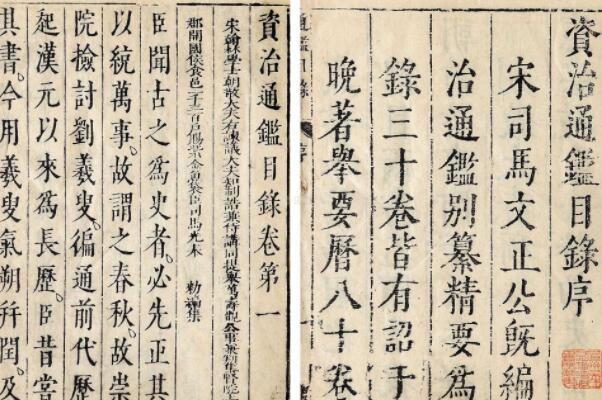 資治通鑑目錄序
宋司馬文正公既編
治通鑑別纂精要爲
錄三十卷皆有詔于
晚著舉要曆八十卷
通鑑目錄
序
資治通鑑目錄卷第一
宋翰林學士朝散大夫右諫議大夫知制誥兼侍講同提舉萬壽觀公事兼判集賢院
郡開國侯食邑一千三百戶賜紫金魚袋臣司馬光奉 敕編集
臣聞古之爲史者。必先正其
以統萬事。故謂之春秋。故崇
院檢討劉羲叟。徧通前代歷
起漢元以來爲長歷。臣昔嘗
其書。今用羲叟氣朔幷閏。及